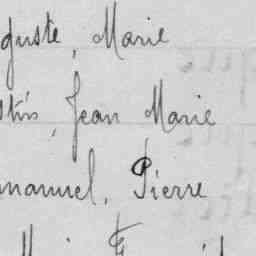 guste, Marie
stin, Jean Marie
manuel, Pierre